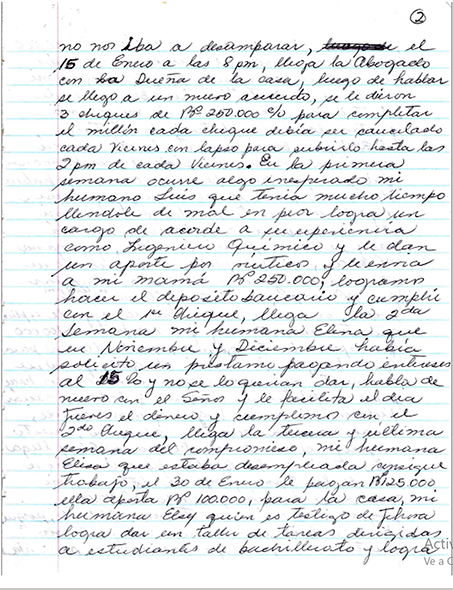 2
no nos iba a desamparar, el
15 de Enero a las 8 pm, llega la Abogado
con la Dueña de la casa, luego de hablar
se llego a un nuevo acuerdo, se le dieron
3 cheques de Bs 250.000 c/u para completar
el millón cada cheque debía ser cancelado
cada Viernes con lapso para subirlo hasta las
2 pm de cada Viernes. En la primera
semana ocurre algo inesperado mi
humano Luis que tenía mucho tiempo
llendole de mal en peor logra un
cargo de acorde a su experiencia
como Ingeniero Químico y le dan
un aporte por y le envia
a mi mamá Bs 250.000, logramos
hacer el deposito bancario y cumplir
con el 1er cheque, llega la 2da
Semana mi humana Elena que
en Noviembre y Diciembre había
solicito un prestamo pagando intereses
al 15% y no se lo querian dar, habla de
nuevo con el Señor y le facilita el día
Jueves el dinero y cumplimos con el
2do cheque, llega la tercera y última
semana del compromiso, mi humana
Elisa que estaba desempleada consigue
trabajo, el 30 de Enero le pagan Bs 125.000
ella aporta Bs 100.000, para la casa, mi
humana Elsy quien es testigo de Jehova
logra dar un taller de tareas dirigidas
a estudiantes de bachillerato y logra
Activ
Ve a C